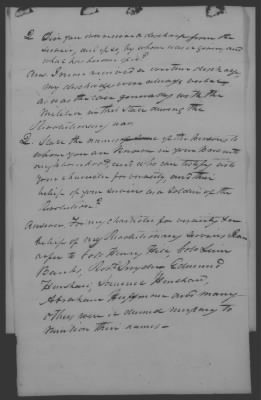 Q Did you ever receive a discharge from the
service, and if so, by whom was it given, and
what has become of it?
Ans. I never received a written discharge
my discharges were always verbal
as was the case generally with the
Militia in this State during the
Revolutionary war
Q. State the names of the persons to
whom you are known in your present
neighborhood, and who can testify as to
your character for veracity, and their
belief of your services as a Soldier of the
Revolution?
Answer. For my character for veracity &
the belief of my Revolutionary Services I can
refer to Colo Henry Hill, Colo
Banks, Robt Snyder Edmund
Henshaw, Samuel Henshaw,
Abraham Huffman and many
others were it deemed necessary to
mention their names.